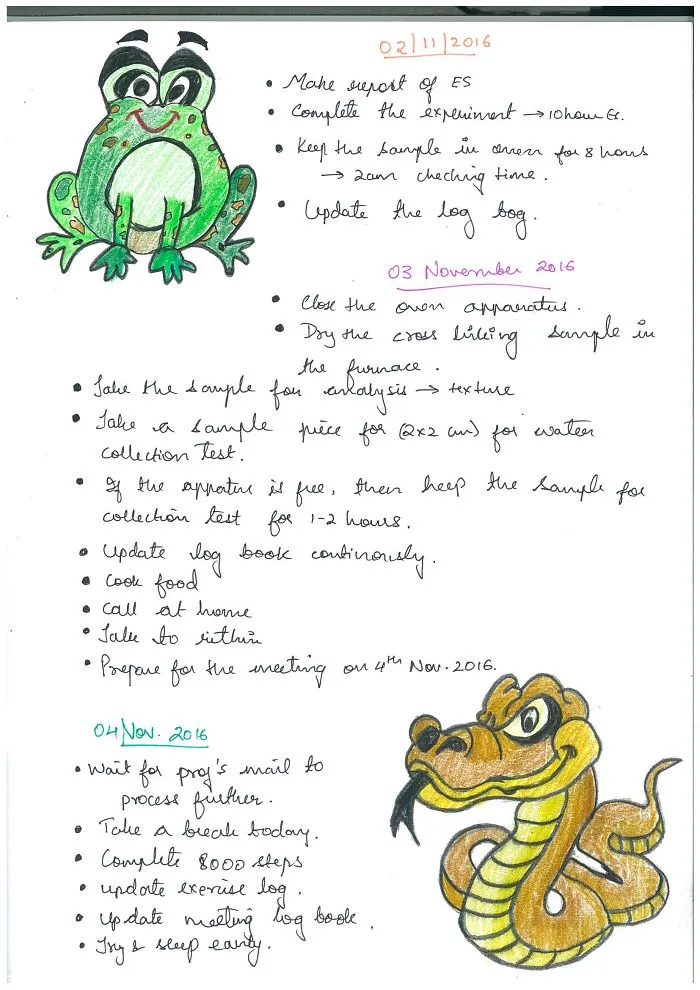 02/11/2016
• Make report of ES
• Complete the experiment → 10 hour Es.
• Keep the sample in oven for 8 hours
→ 2am checking time.
• Update the log bog.
03 November 2016
• Close the oven apparatus.
• Dry the cross linking sample in
the furnace.
• Take the sample for analysis → texture
• Take a sample piece for (2x2 cm) for water
collection test.
• If the appatus is free, then keep the sample for
collection test for 1-2 hours.
• Update log book continously.
• Cook food
• Call at home
• Talk to
• Prepare for the meeting on 4th Nov. 2016.
04 Nov. 2016
• Wait for prof's mail to
process further.
• Take a break today.
• Complete 8000 steps
• update exercise log.
• Update meeting log book.
• Try & sleep early.